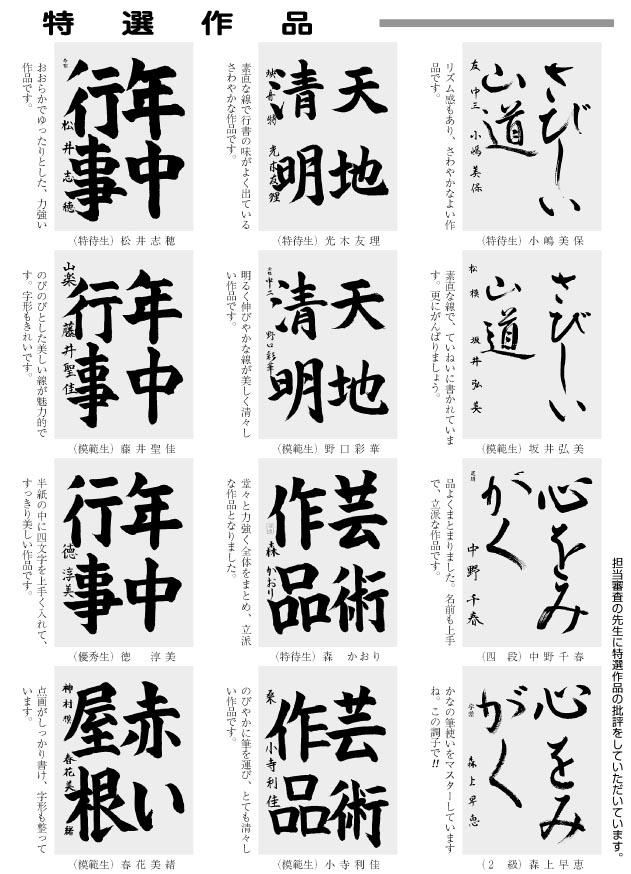 特選作品
担当審査の先生に特選作品の批評をしていただいています。
さびしい
山道
友 中三 小嶋美保
リズム感もあり、さわやかなよい作
品です。
(特待生) 小嶋美保
天地
清明
光木友理
素直な線で行書の味がよく出ている
さわやかな作品です。
(特待生) 光木友理
年中
行事
松井志穂
おおらかでゆったりとした、力強い
作品です。
(特待生) 松井志穂
さびしい
山道
松 模 坂井弘美
素直な線で、ていねいに書かれていま
す。更にがんばりましょう。
(模範生) 坂井弘美
天地
清明
野口彩華
明るく伸びやかな線が美しく清々し
い作品です。
(模範生) 野口彩華
年中
行事
山楽 藤井聖佳
のびのびとした美しい線が魅力的で
す。字形もきれいです。
(模範生) 藤井聖佳
心をみ
がく
中野千春
品よくまとまりました。名前も上手
で、立派な作品です。
(四 段) 中野千春
芸術
作品
森 かおり
堂々と力強く全体をまとめ、立派
な作品となりました。
(特待生) 森 かおり
年中
行事
徳 淳美
半紙の中に四文字を上手く入れて、
すっきり美しい作品です。
(優秀生) 徳 淳美
心をみ
がく
森上早恵
かなの筆使いをマスターしています
ね。この調子で!!
(2 級) 森上早恵
芸術
作品
小寺利佳
のびやかに筆を運び、とても清々し
い作品です。
(模範生) 小寺利佳
赤い
屋根
神村 模 春花美緒
点画がしっかり書け、字形も整って
います。
(模範生) 春花美緒